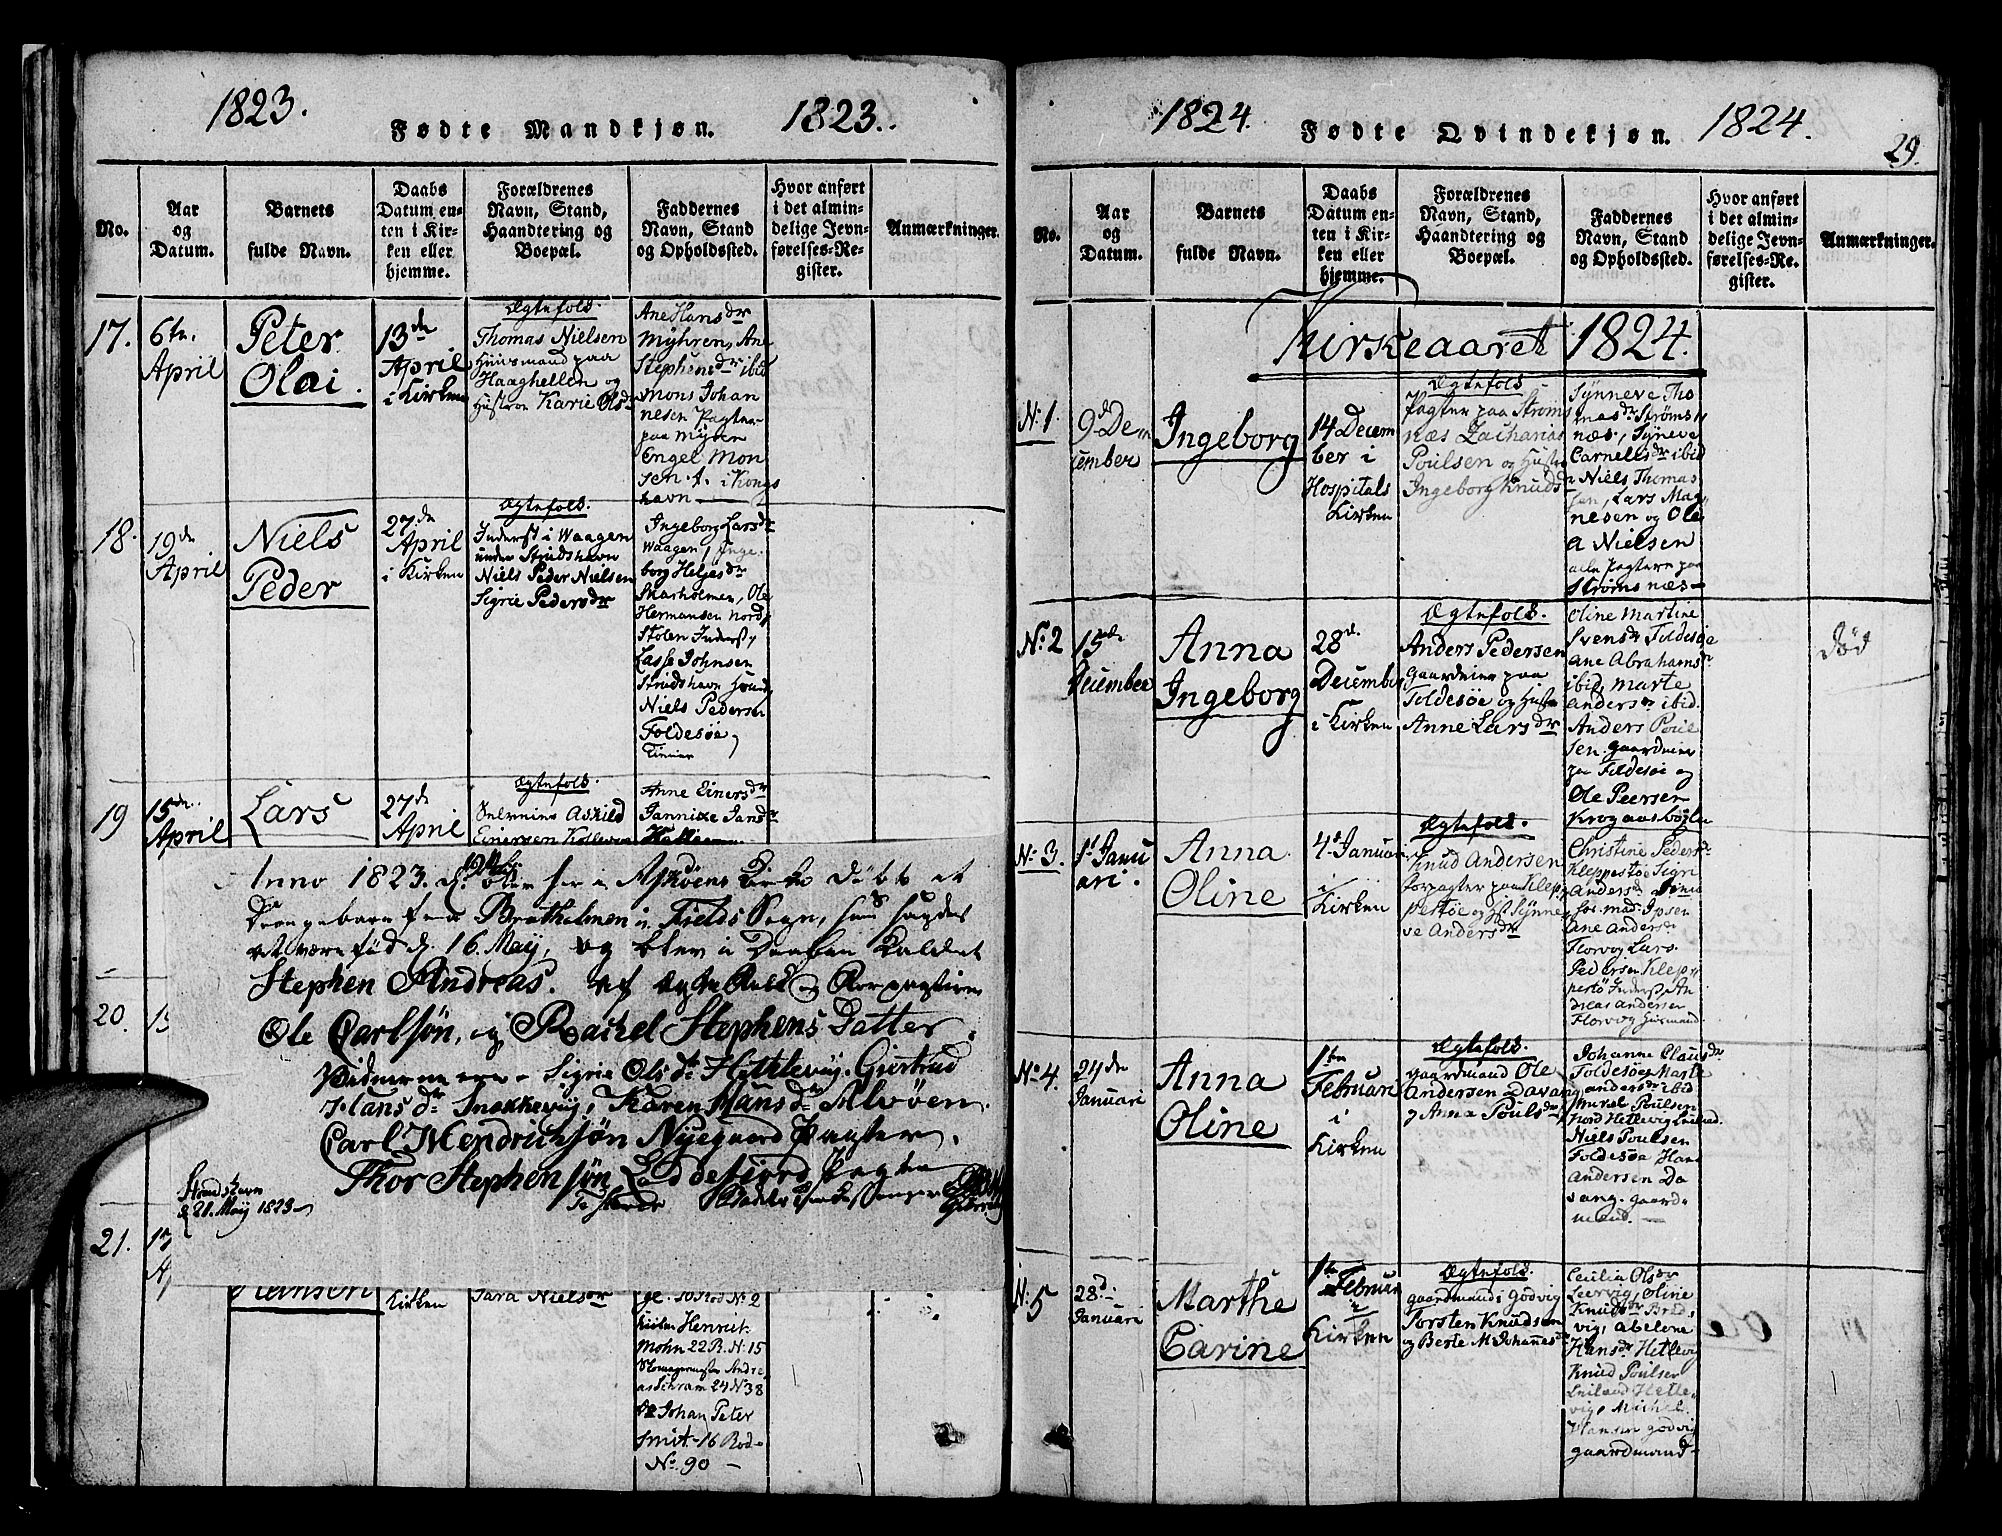 1823.
Fødte Mandkjøn.
1823.
No.
Aar
og
Datum.
Barnets
fulde Navn.
Daabs
Datum en-
ten i Kir-
ken eller
hjemme.
Forældrenes
Navn, Stand,
Haandtering og
Boepæl.
Faddernes
Navn, Stand
og Opholdssted.
Hvor anført
i det almin-
delige Jevn-
førelses-Re-
gister.
Anmærkninger.
17.
6te
April
Peter
Olai.
13de
April
i Kirken
Ægtefolk.
Thomas Nielsen
Huusmand paa
Haaghellen og
Hustroe Karie Olsdr
Ane Hansdr
Myhren, Ane
Stephensdr ibid
Mons Johan
nesen Pagter
paa Myren
Engel Mon
sen i Kongs
havn
18.
19de
April
Niels
Peder
27de
April
i Kirken
Ægtefolk.
Inderst i Waagen
under Strudshavn
Niels Peder Nielsen
Sigrie Pedersdr
Ingeborg Larsdr
Waagen, Inge
borg Helgesdr
Marholmen, Ole
Hermansen Nord
Stolen Inderst,
Lasse Johnsen
Strudshavn
Niels Pedersen
Foldesøe,
19
15de
April
Lars
27de
April
Ægtefolk.
Askild
Einersen
Anne Einersdr
Jannike Jansdr
20.
15
21.
Anno 1823. d. blev her i Askøens Kirke døbt et
Drengebarn fra Bratholmen i Fields Sogn, som sagdes
at være fød d. 16. May, og blev i Daaben kaldet
Stephen Andreas. af Ægte
Ole Carlsøn, og Rachel Stephens Datter.
Vidnerne ere Sigrie Olsdr Hettlevig. Giertrud
Hansdr Snekkevig, Karen Hansdr Alvøen.
Carl Hendrichsøn Nyegaard Pagter.
Thor Stephensøn Laddefiord Pagter
Strudshavn
d 21. May 1823
Kirken
Sara Nielsdr
Rod No 2
Henrik
Mohn 22 R. N. 15
Andre
as Schram 24 N 38
Johan Peter
Smit 16 Rod
No. 90
1824.
Fødte Qvindekjøn.
1824.
29.
No.
Aar
og
Datum.
Barnets
fulde Navn.
Daabs
Datum en-
ten i Kir-
ken eller
hjemme.
Forældrenes
Navn, Stand,
Haandtering og
Boepæl.
Faddernes
Navn, Stand
og Opholdssted.
Hvor anført
i det almin-
delige Jevn-
førelses-Re-
gister.
Anmærkninger.
Kirkeaaret 1824.
No 1.
9d De
cember
Ingeborg
14 Decem
ber i
Hospitals
Kirken
Ægtefolk
Pagter paa Strøms
næs Zacharias
Poulsen og Hustr
Ingeborg Knuds
Synneve Tho
masdr Strøms
næs, Syneve
Carnelisdr ibid
Niels Thomas
sen, Lars Mag
nesen og Ole
A Nielsen
alle Pagtere paa
Strømsnæs
No. 2
15de
December
Anna
Ingeborg
28d.
December
i Kirken
Ægtefolk.
Anders Pedersen
Gaardmand paa
Foldesøe og Hustr
Anne Larsdr
Oline Martine
Svensdr Foldesøe
Ane Abrahamsdr
ibid, Marte
Andersdr ibid.
Anders Poul
sen. gaardmand
paa Foldesøe og
Ole Peersen
Krogaasbøgle
død
No 3.
1st Janu
ari.
Anna
Oline
4d Januari
i
Kirken
Ægtefolk.
Knud Andersen
forpagter paa Klep
pestøe og Synne
ve Andersdr
Christine Pedersdr
Kleppestøe Sigri
Andersdr
Ipsen
Ane Andersdr
Florvog Lars
Pedersen Klep
pestø Inderst An
dreas Andersen
Florvog Husmand
No 4.
24de
Januari
Anna
Oline
1te
Februari
i
Kirken
Ægtefolk.
gaardmand Ole
Andersen Davang
og Anna Poulsdr
Johanne Clausdr
Foldesøe Marte
Andersdr ibid
Poulsen
Nord Hetlevig
Niels Poulsen
Foldesøe Hans
Andersen Da
vang. gaard
mand.
No 5
28d
Januari
Marthe
Carine
1te
Februar
i
Kirken
Ægtefolk.
gaardmand i Godvig
Torsten Knudsen
og Berte M Johannesdr
Cecilia Olsdr
Leervig, Oline
Knudsdr Bred
vig, Abelone
Hansdr Hetlevig
Knud Poulsen
Hetle
vig, Michel
Hansen Godvig
gaardmand